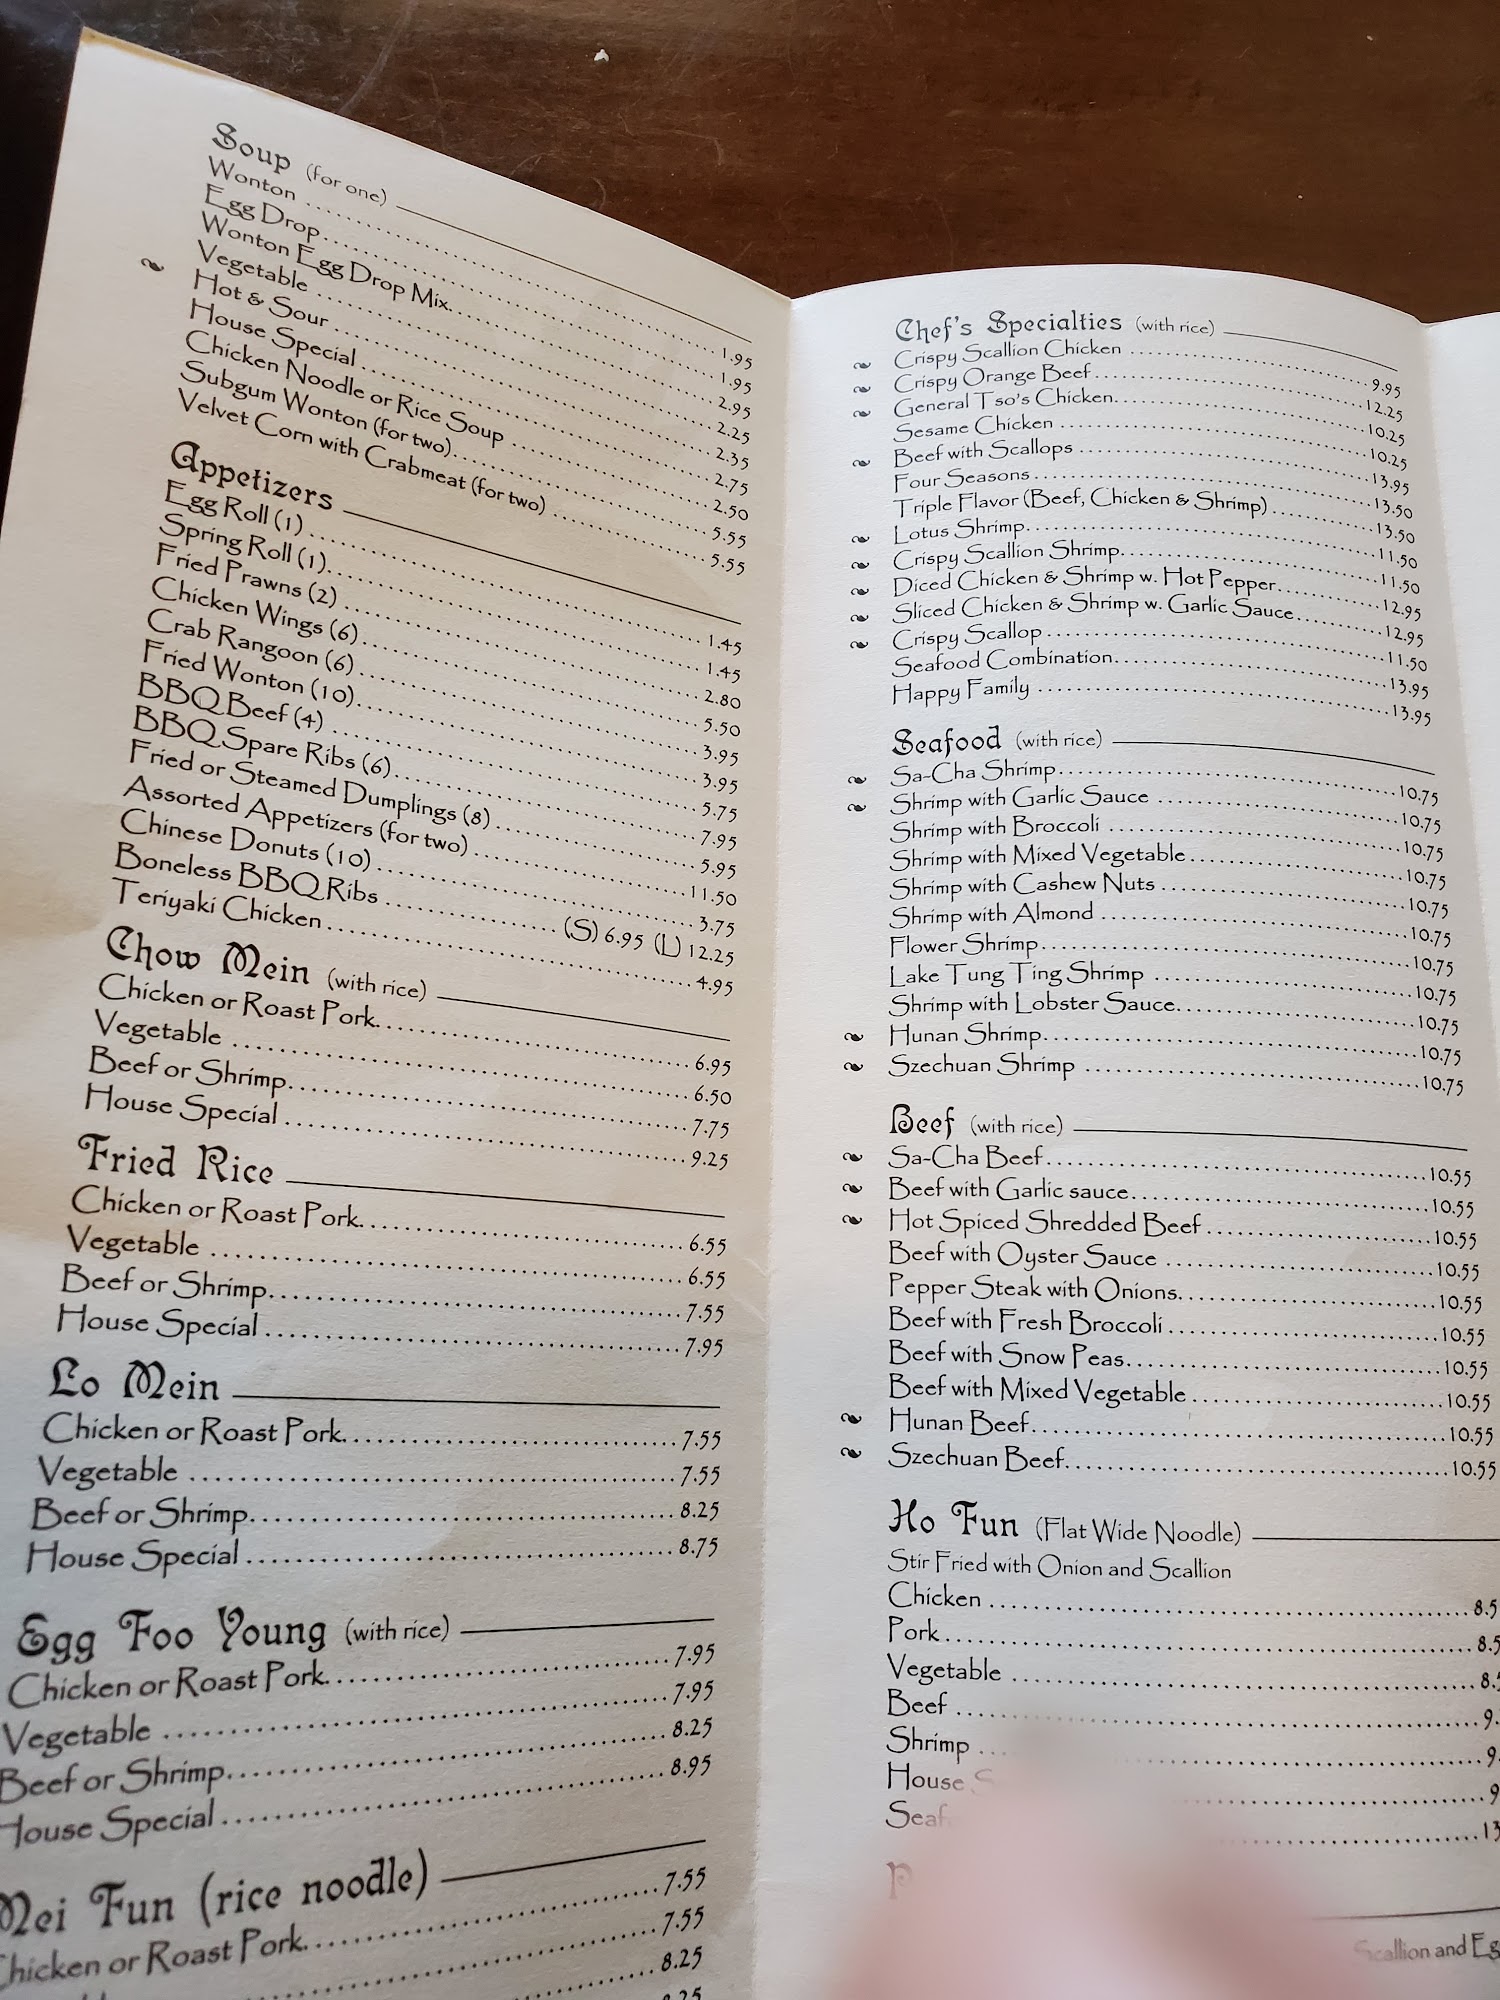 Soup (for one)
Wonton 1.95
Egg Drop 1.95
Wonton Egg Drop Mix 2.95
Vegetable 2.25
Hot & Sour 2.35
House Special 2.75
Chicken Noodle or Rice Soup 2.50
Subgum Wonton (for two) 5.55
Velvet Corn with Crabmeat (for two) 5.55
Appetizers
Egg Roll (1) 1.45
Spring Roll (1) 1.45
Fried Prawns (2) 2.80
Chicken Wings (6) 5.50
Crab Rangoon (6) 3.95
Fried Wonton (10) 3.95
BBQ Beef (4) 5.75
BBQ Spare Ribs (6) 7.95
Fried or Steamed Dumplings (8) 5.95
Assorted Appetizers (for two) 11.50
Chinese Donuts (10) 3.75
Boneless BBQ Ribs (S) 6.95 (L) 12.25
Teriyaki Chicken 4.95
Chow Mein (with rice)
Chicken or Roast Pork 6.95
Vegetable 6.50
Beef or Shrimp 7.75
House Special 9.25
Fried Rice
Chicken or Roast Pork 6.55
Vegetable 6.55
Beef or Shrimp 7.55
House Special 7.95
Lo Mein
Chicken or Roast Pork 7.55
Vegetable 7.55
Beef or Shrimp 8.25
House Special 8.75
Egg Foo Young (with rice)
Chicken or Roast Pork 7.95
Vegetable 7.95
Beef or Shrimp 8.25
House Special 8.95
Mei Fun (rice noodle)
Chicken or Roast Pork 7.55
7.55
8.25
8.25
Chef's Specialties (with rice)
Crispy Scallion Chicken 9.95
Crispy Orange Beef 12.25
General Tso's Chicken 10.25
Sesame Chicken 10.25
Beef with Scallops 13.95
Four Seasons 13.50
Triple Flavor (Beef, Chicken & Shrimp) 13.50
Lotus Shrimp 11.50
Crispy Scallion Shrimp 11.50
Diced Chicken & Shrimp w. Hot Pepper 12.95
Sliced Chicken & Shrimp w. Garlic Sauce 12.95
Crispy Scallop 11.50
Seafood Combination 13.95
Happy Family 13.95
Seafood (with rice)
Sa-Cha Shrimp 10.75
Shrimp with Garlic Sauce 10.75
Shrimp with Broccoli 10.75
Shrimp with Mixed Vegetable 10.75
Shrimp with Cashew Nuts 10.75
Shrimp with Almond 10.75
Flower Shrimp 10.75
Lake Tung Ting Shrimp 10.75
Shrimp with Lobster Sauce 10.75
Hunan Shrimp 10.75
Szechuan Shrimp 10.75
Beef (with rice)
Sa-Cha Beef 10.55
Beef with Garlic sauce 10.55
Hot Spiced Shredded Beef 10.55
Beef with Oyster Sauce 10.55
Pepper Steak with Onions 10.55
Beef with Fresh Broccoli 10.55
Beef with Snow Peas 10.55
Beef with Mixed Vegetable 10.55
Hunan Beef 10.55
Szechuan Beef 10.55
Ho Fun (Flat Wide Noodle)
Stir Fried with Onion and Scallion
Chicken 8.5
Pork 8.5
Vegetable 8.5
Beef 9.
Shrimp 9.
House 9
Seaf 13
Scallion and Eg